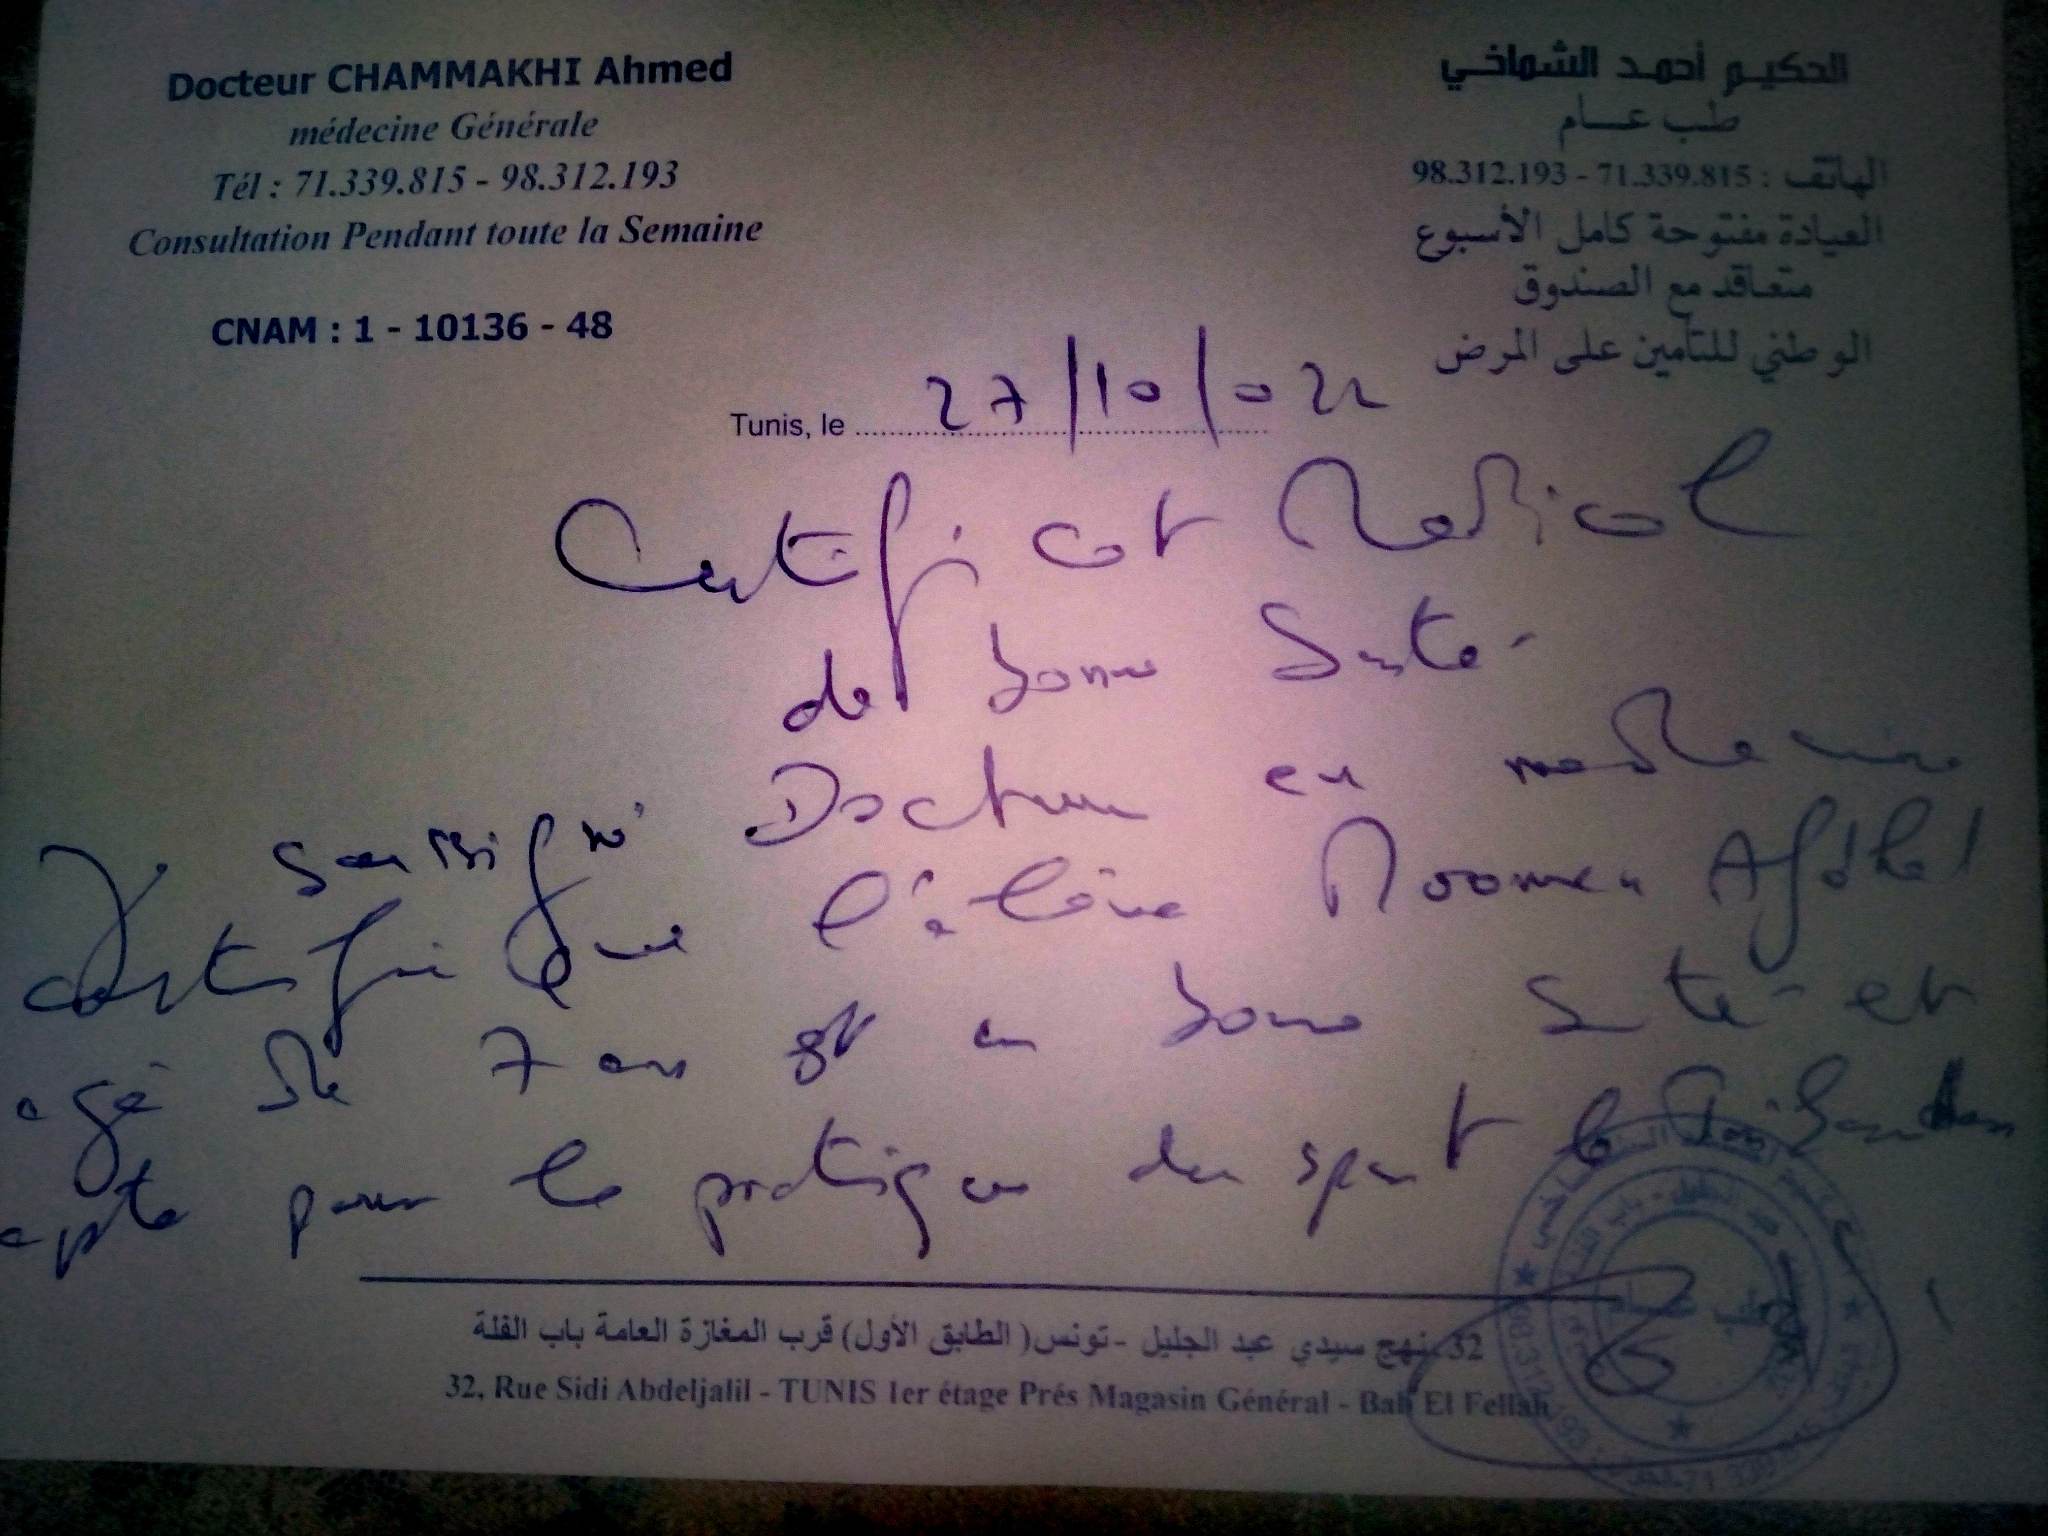 Docteur CHAMMAKHI Ahmed
médecine Générale
Tél : 71.339.815 - 98.312.193
Consultation Pendant toute la Semaine
CNAM : 1 - 10136 - 48
الحكيم أحمد الشماخي
طب عام
الهاتف : 71.339.815 - 98.312.193
العيادة مفتوحة كامل الأسبوع
متعاقد مع الصندوق
الوطني للتأمين على المرض
Tunis, le 27/10/022
Certificat Medical
de bonne Santé
Je soussigné Docteur en medecine
certifie que l'élève Afdhal
agé de 7 ans est en bonne Santé et
apte pour la pratique du sport
32 نهج سيدي عبد الجليل - تونس ( الطابق الأول) قرب المغازة العامة باب الفلة
32, Rue Sidi Abdeljalil - TUNIS 1er étage Prés Magasin Général - Bab El Fellah